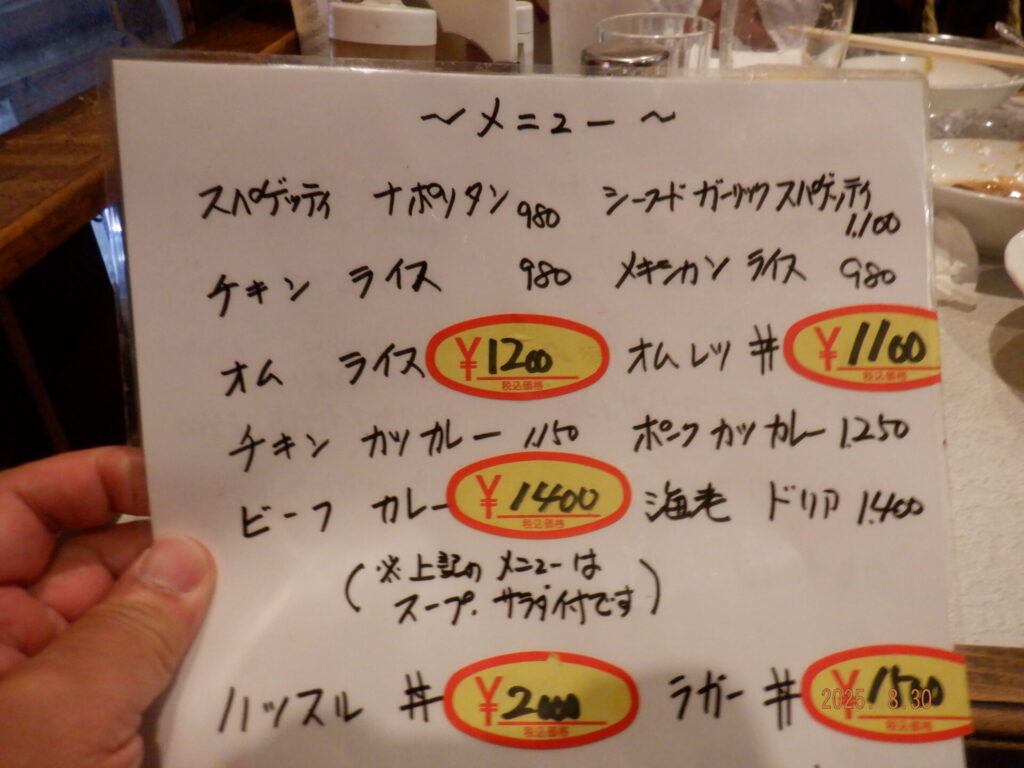 ～メニュー～
スパゲッティ ナポリタン 980 シーフードガーリックスパゲッティ 1.100
チキン ライス 980 メキシカン ライス 980
オム ライス ¥1200 税込価格 オムレツ丼 ¥1100 税込価格
チキン カツカレー 1.150 ポークカツカレー 1.250
ビーフ カレー ¥1400 税込価格 海老 ドリア 1.400
(※上記のメニューは
スープ.サラダ付です)
ハッスル 丼 ¥2000 税込価格 ラガー丼 ¥1500 税込価格
2025. 8.30